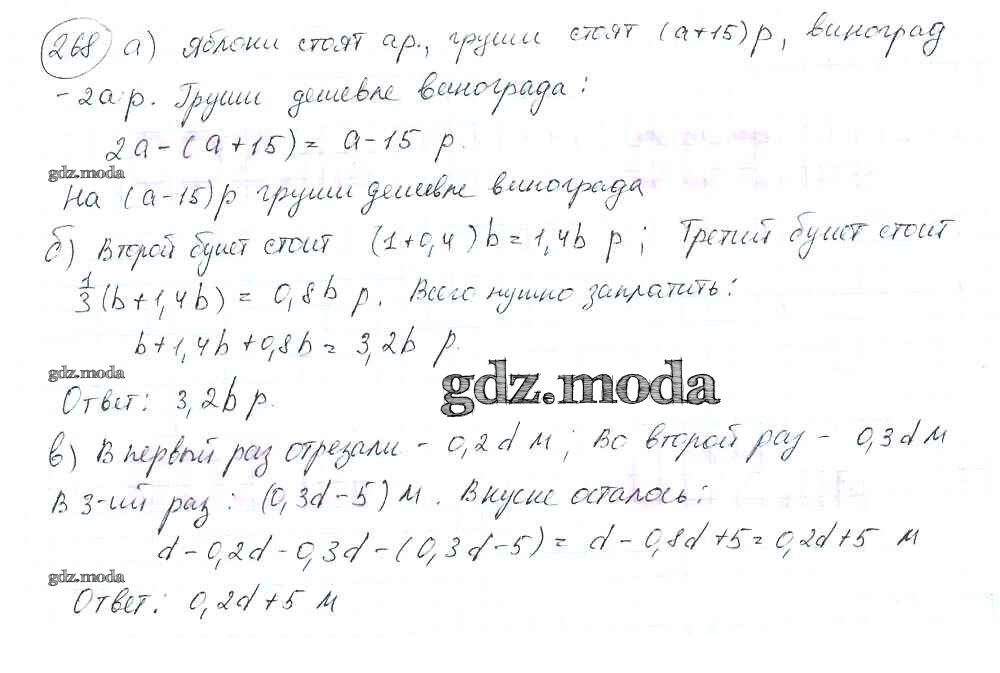 268 а) Яблоки стоят a р., груши стоят (a+15) р, виноград
- 2a р. Груши дешевле винограда:
2a-(a+15)= a-15 р.
gdz.moda
На (a-15) р груши дешевле винограда
б) Второй букет стоит (1+0,4)b=1,4b р; Третий букет стоит
1/3(b+1,4b) = 0,8b р. Всего нужно заплатить:
b+1,4b+0,8b= 3,2b р.
gdz.moda
gdz.moda
Ответ: 3,2b р.
в) В первый раз отрезали - 0,2d м; Во второй раз - 0,3d м
В 3-ий раз: (0,3d-5) м. В куске осталось:
d-0,2d-0,3d-(0,3d-5)= d-0,8d+5=0,2d+5 м
gdz.moda
Ответ: 0,2d+5 м